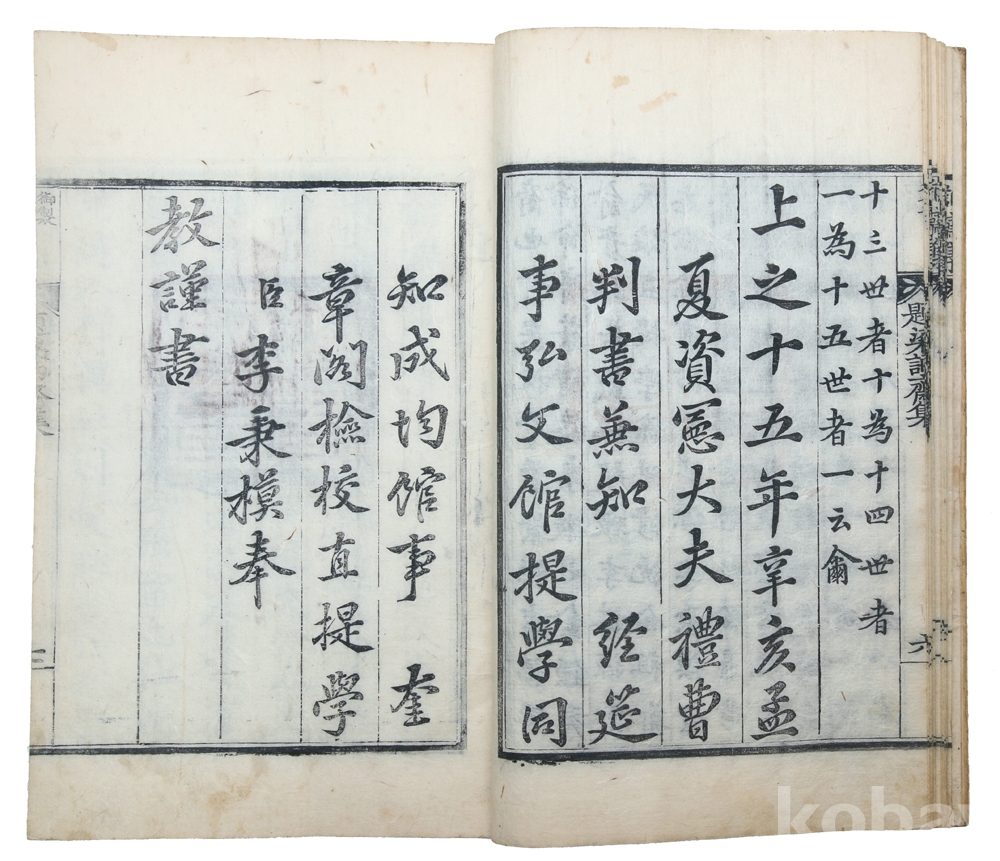 十三世者十為十四世者
一為十五世者一云爾
上之十五年辛亥孟
夏資憲大夫禮曹
判書兼知 經筵
事弘文館提學同
知成均館事 奎
章閣檢校直提學
臣李秉模奉
教謹書
題梁訥齋集
六
御製
三
koba